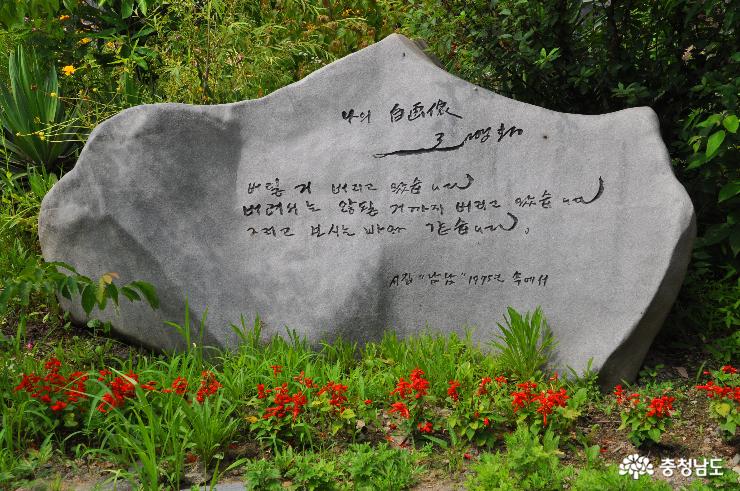 나의 自画像
조병화
버릴 거 버리고 왔습니다
버려서는 안될 거까지 버리고 왔습니다
그리고 보시는 바와 같습니다.
시집 "남남" 1975년 속에서
충청남도